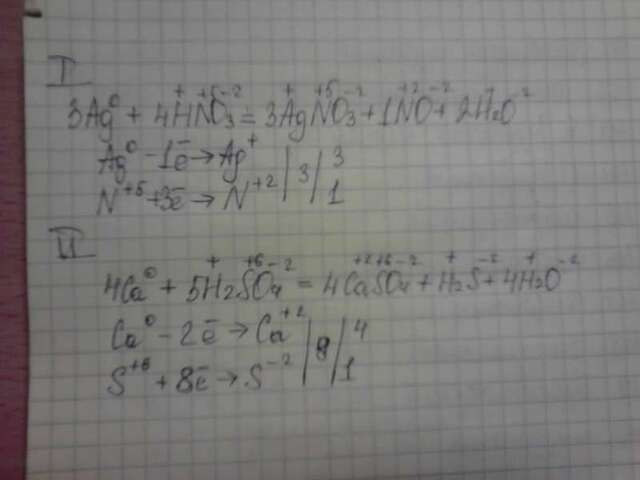 I
3Ag⁰ + 4H⁺N⁺⁵O₃⁻² = 3Ag⁺N⁺⁵O₃⁻² + 1N⁺²O⁻² + 2H₂⁺O⁻²
Ag⁰ - 1ē → Ag⁺ | 3 | 3
N⁺⁵ + 3ē → N⁺² | | 1
II
4Ca⁰ + 5H₂⁺S⁺⁶O₄⁻² = 4Ca⁺²S⁺⁶O₄⁻² + H₂⁺S⁻² + 4H₂⁺O⁻²
Ca⁰ - 2ē → Ca⁺² | 8 | 4
S⁺⁶ + 8ē → S⁻² | | 1